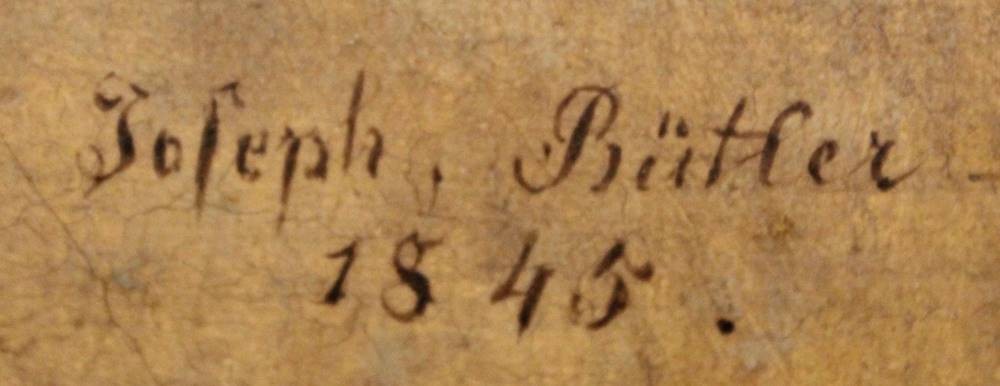 Joseph, Bütler
1845.